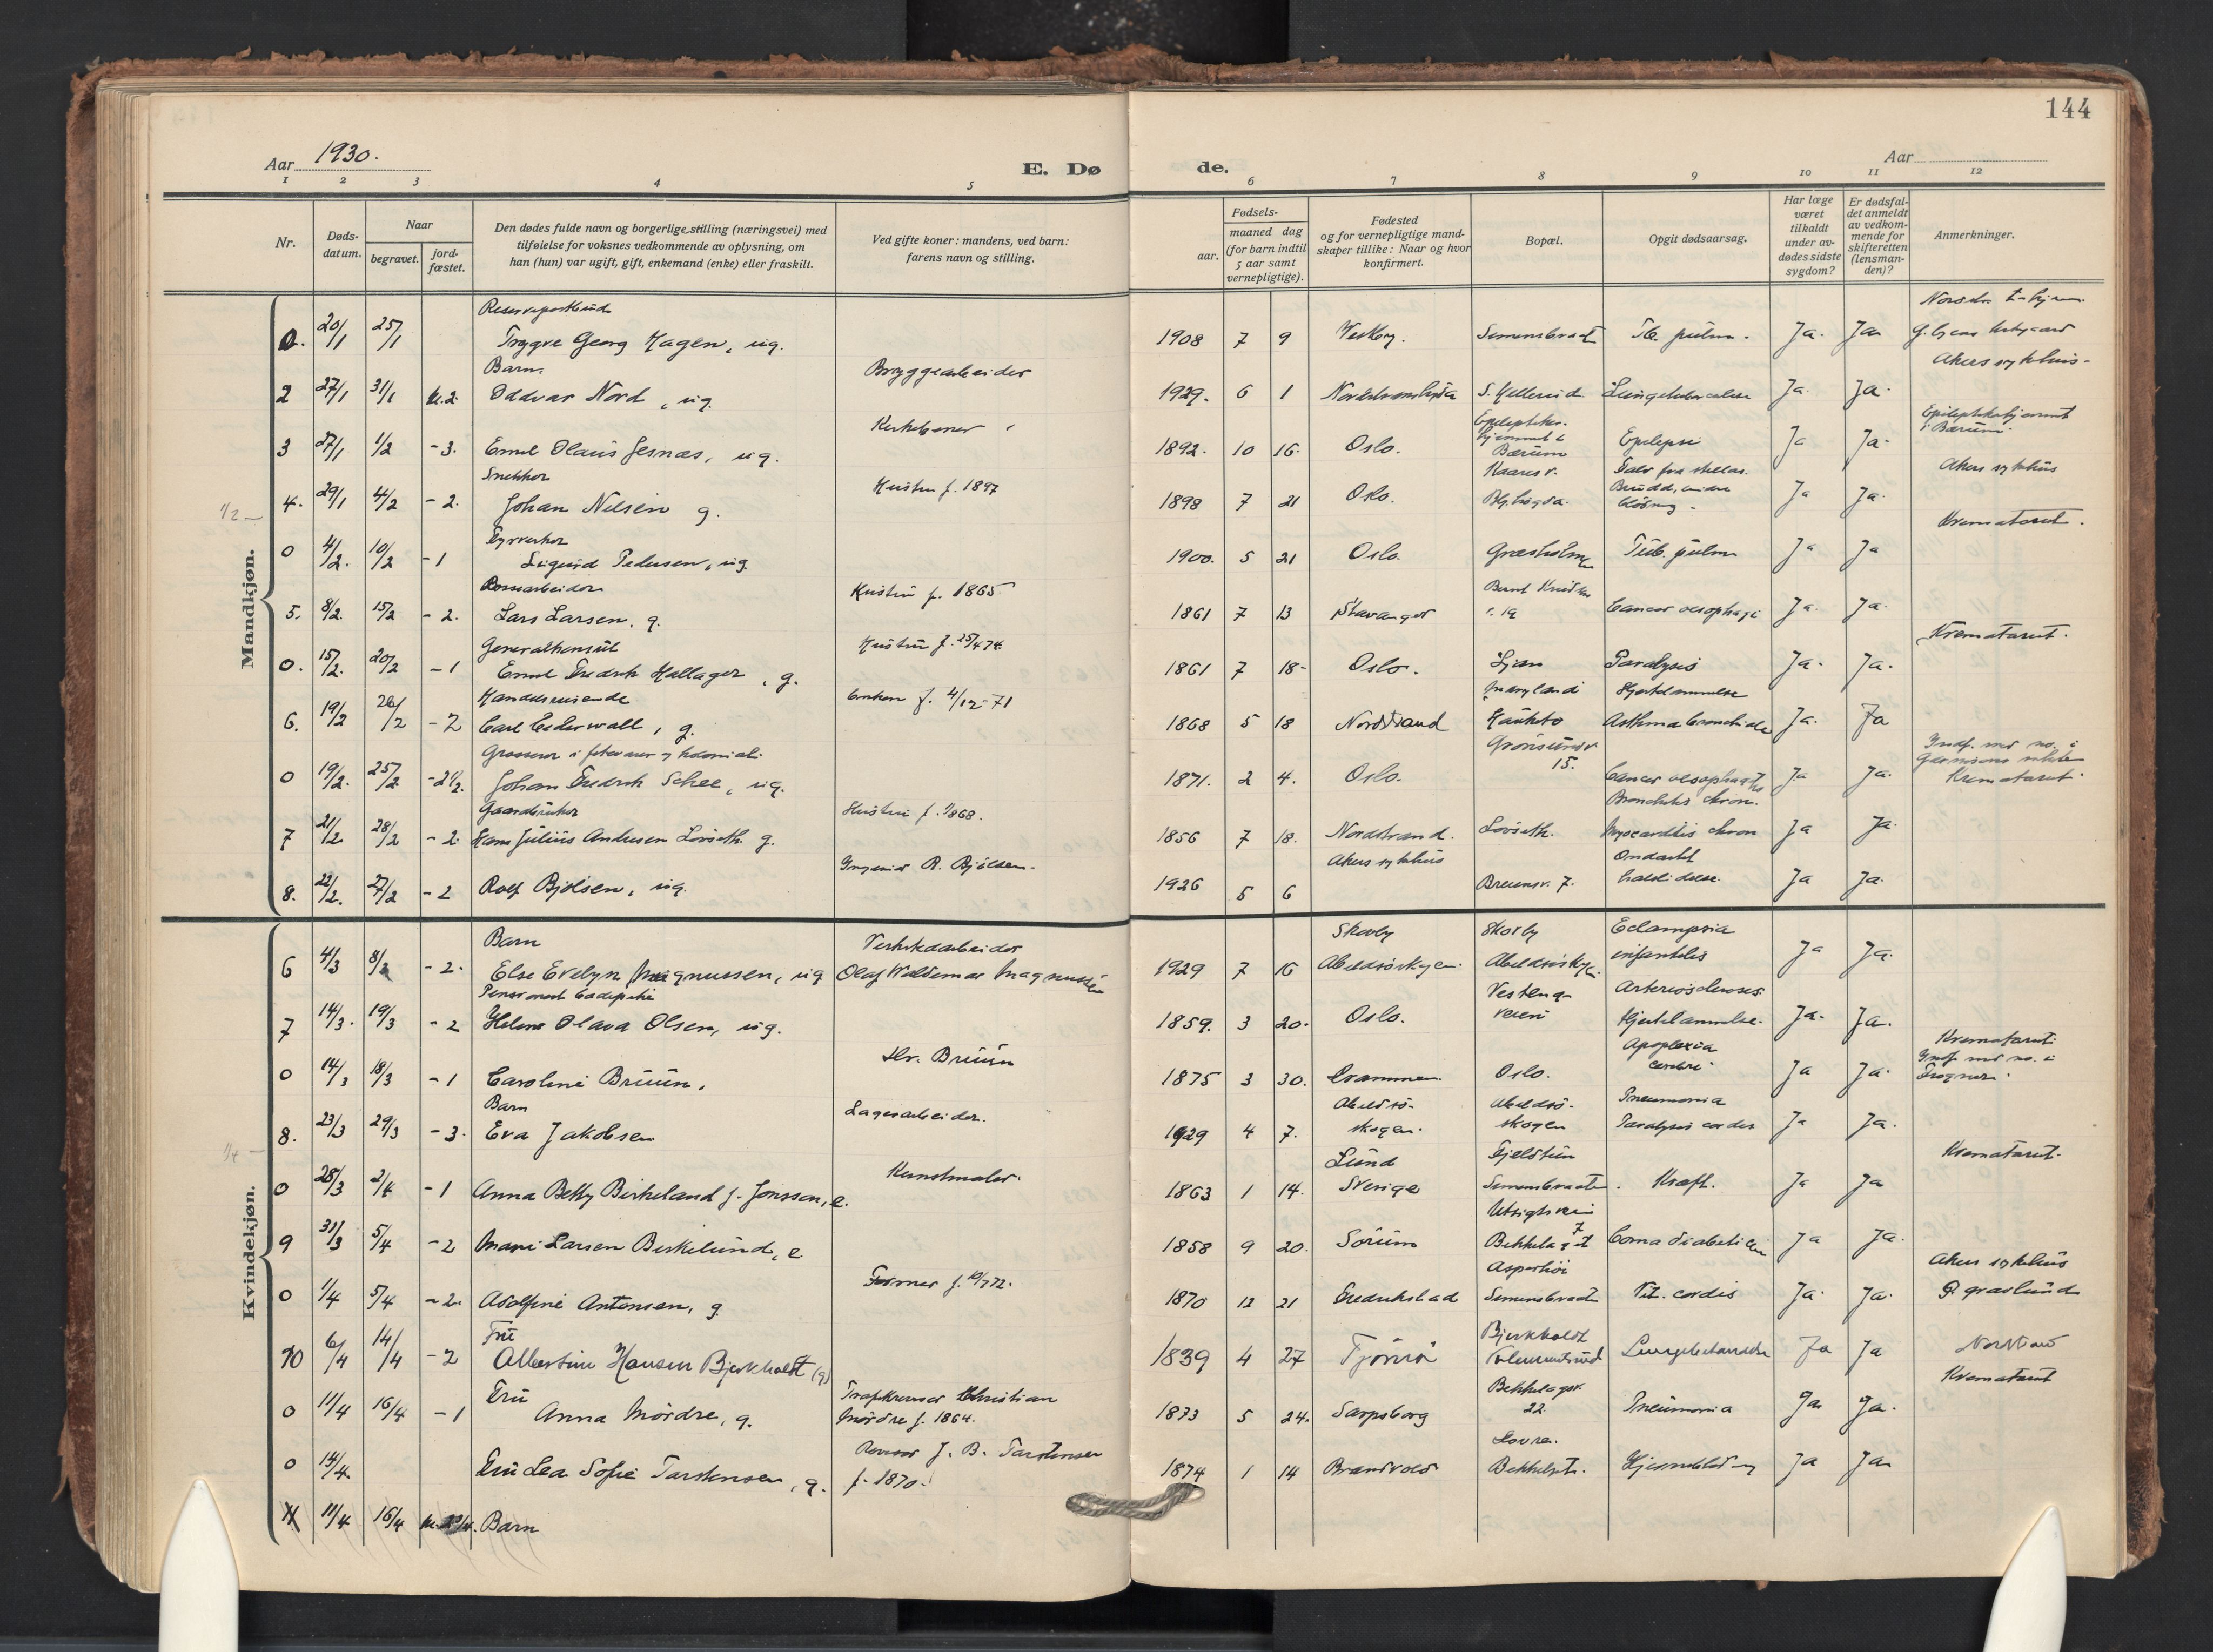 144
Aar 1930.
E. Dø
de.
Aar
1 2 3 4 5 6 7 8 9 10 11 12
Nr.
Døds-
datum.
Naar
begravet.
jord-
fæstet.
Den dødes fulde navn og borgerlige stilling (næringsvei) med
tilføielse for voksnes vedkommende av oplysning, om
han (hun) var ugift, gift, enkemand (enke) eller fraskilt.
Ved gifte koner: mandens, ved barn:
farens navn og stilling.
Fødsels-
aar.
maaned dag
(for barn indtil
5 aar samt
vernepligtige).
Fødested
og for vernepligtige mand-
skaper tillike: Naar og hvor
konfirmert.
Bopæl.
Opgit dødsaarsag.
Har læge
været
tilkaldt
under av-
dødes sidste
sygdom?
Er dødsfal-
det anmeldt
av vedkom-
mende for
skifteretten
(lensman-
den)?
Anmerkninger.
Mandkjøn.
0. 20/1 25/1 Trygve Georg Hagen, ug. 1908 7 9 Vestby. Simensbraat Tb. pulm. Ja. Ja
Barn. Bryggearbeider Akers sykhus
2 27/1 31/1 kl. 2. Oddvar Nord, ug. 1929. 6 1 S. Hellerud Ja. Ja.
Epileptiker-
hjemmet i
3 27/1 1/2 - 3. Emil Olaus Jesnæs, ug. 1892. 10 16. Oslo. Bærum Epilepsi Ja Ja. i Bærum
Snekker Hustru f. 1897 Kaares v. Akers sykhus
1/2 - 4. 29/1 4/2 - 2. Johan Nilsen g. 1898 7 21 Oslo. Ja Ja.
Fyrverker Krematoriet.
0 4/2. 10/2 - 1 Sigurd Pedersen, ug. 1900. 5 21 Oslo. Græsholmen Tub. pulm Ja Ja
Hustru f. 1865
5. 8/2. 15/2 - 2. Lars Larsen, g. 1861 7 13 Stavanger Cancer oesophagi Ja. Ja.
Generalkonsul Hustru f. 25/4 74 Krematoriet.
0. 15/2. 20/2 - 1 Emil Fredrik Hallager, g. 1861 7 18 Oslo. Ljan Paralysis Ja. Ja.
Handelsreisende f. 4/12-71 Hjertelammelse
6. 19/2 26/2 - 2 Carl Cederwall, g. 1868 5 18 Nordstrand Hauketo Asthma bronchiale Ja. Ja
Grosserer i
0 19/2. 25/2. - 2 1/2. Johan Fredrik Schee, ug. 1871. 2 4. Oslo. 15. Cancer oesophagi Ja Ja. Krematoriet.
Gaardbruker Hustru f. 1868. Bronchitis chron.
7 21/2. 28/2 - 2. Hans Julius Andersen Løvseth. g. 1856 7 18. Nordstrand. Løvseth. Myocarditis chron Ja Ja.
Ingeniør R. Bjølsen. Akers sykhus Ondartet
8. 22/2. 27/2 - 2 Rolf Bjølsen, ug. 1926 5 6 7. Ja Ja.
Kvindekjøn.
Barn Verkstedarbeider Skovby Skovby Eclampsia
6 4/3 8/3 - 2. Else Evelyn Magnussen, ug Olaf Waldemar Magnussen 1929 7 16 infantilis Ja Ja.
Arteriosclerosis.
7 14/3. 19/3 - 2 Helene Olava Olsen, ug. 1859. 3 20. Oslo. veien Hjertelammelse. Ja. Ja.
Hr. Bruun Apoplexia Krematoriet.
0 14/3 18/3 - 1 Caroline Bruun. 1875 3 30. Drammen Oslo. cerebri Ja Ja.
Barn Lagerarbeider. Abildsø- Abildsø- Pneumonia
8. 23/3 29/3 - 3. Eva Jakobsen 1929 4 7. skogen. skogen Paralysis cordis Ja Ja.
1/4 - Kunstmaler. Lund Fjeldtun Krematoriet.
0 28/3 2/4 - 1 Anna Betty Birkeland f. Jonsson, e. 1863 1 14. Sverige Simensbraaten. Kræft. Ja Ja
Utsigtsvei
7
9 31/3 5/4 - 2 Marie Larsen Birkelund, e 1858 9 20. Sørum Bekkelaget Coma diabeticum Ja Ja.
Former f. 10/7 72. Akers sykehus
0 1/4 5/4 - 2. Adolfine Antonsen, g. 1870 12 21 Fredrikstad Simensbraat Vit. cordis Ja. Ja. Ø. gravlund
Fru Bjerkholdt
10 6/4 14/4 - 2 Albertine Hansen Bjerkholdt (g) 1839 4 27 Tjømø Klemetsrud Lungebetændelse Ja Ja Nordstrand
Fru Christian Bekkelagsv. Krematoriet
0 11/4 16/4 - 1 Anna Mørdre, g. Mørdre f. 1864. 1873 5 24. Sarpsborg 22. Pneumonia Ja Ja.
Revisor J. B. Torstensen
0 14/4 Fru Lea Sofie Torstensen, g. f. 1870. 1874 1 14 Brandvold Ja Ja
11 11/4 16/4 Barn